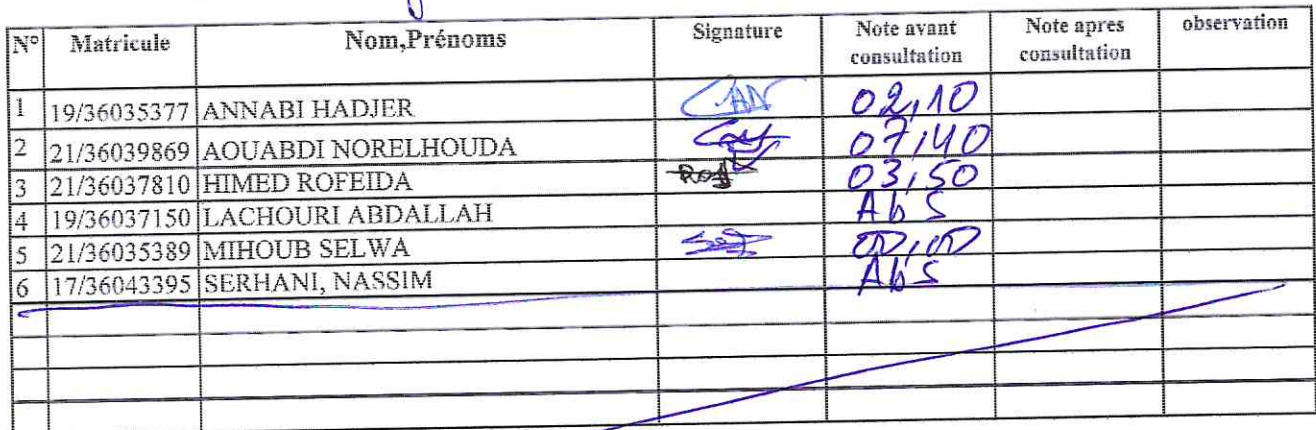 N° Matricule Nom,Prénoms Signature Note avant consultation Note apres consultation observation
1 19/36035377 ANNABI HADJER 02,10
2 21/36039869 AOUABDI NORELHOUDA 07,40
3 21/36037810 HIMED ROFEIDA 03,50
4 19/36037150 LACHOURI ABDALLAH Abs
5 21/36035389 MIHOUB SELWA 00,00
6 17/36043395 SERHANI, NASSIM Abs